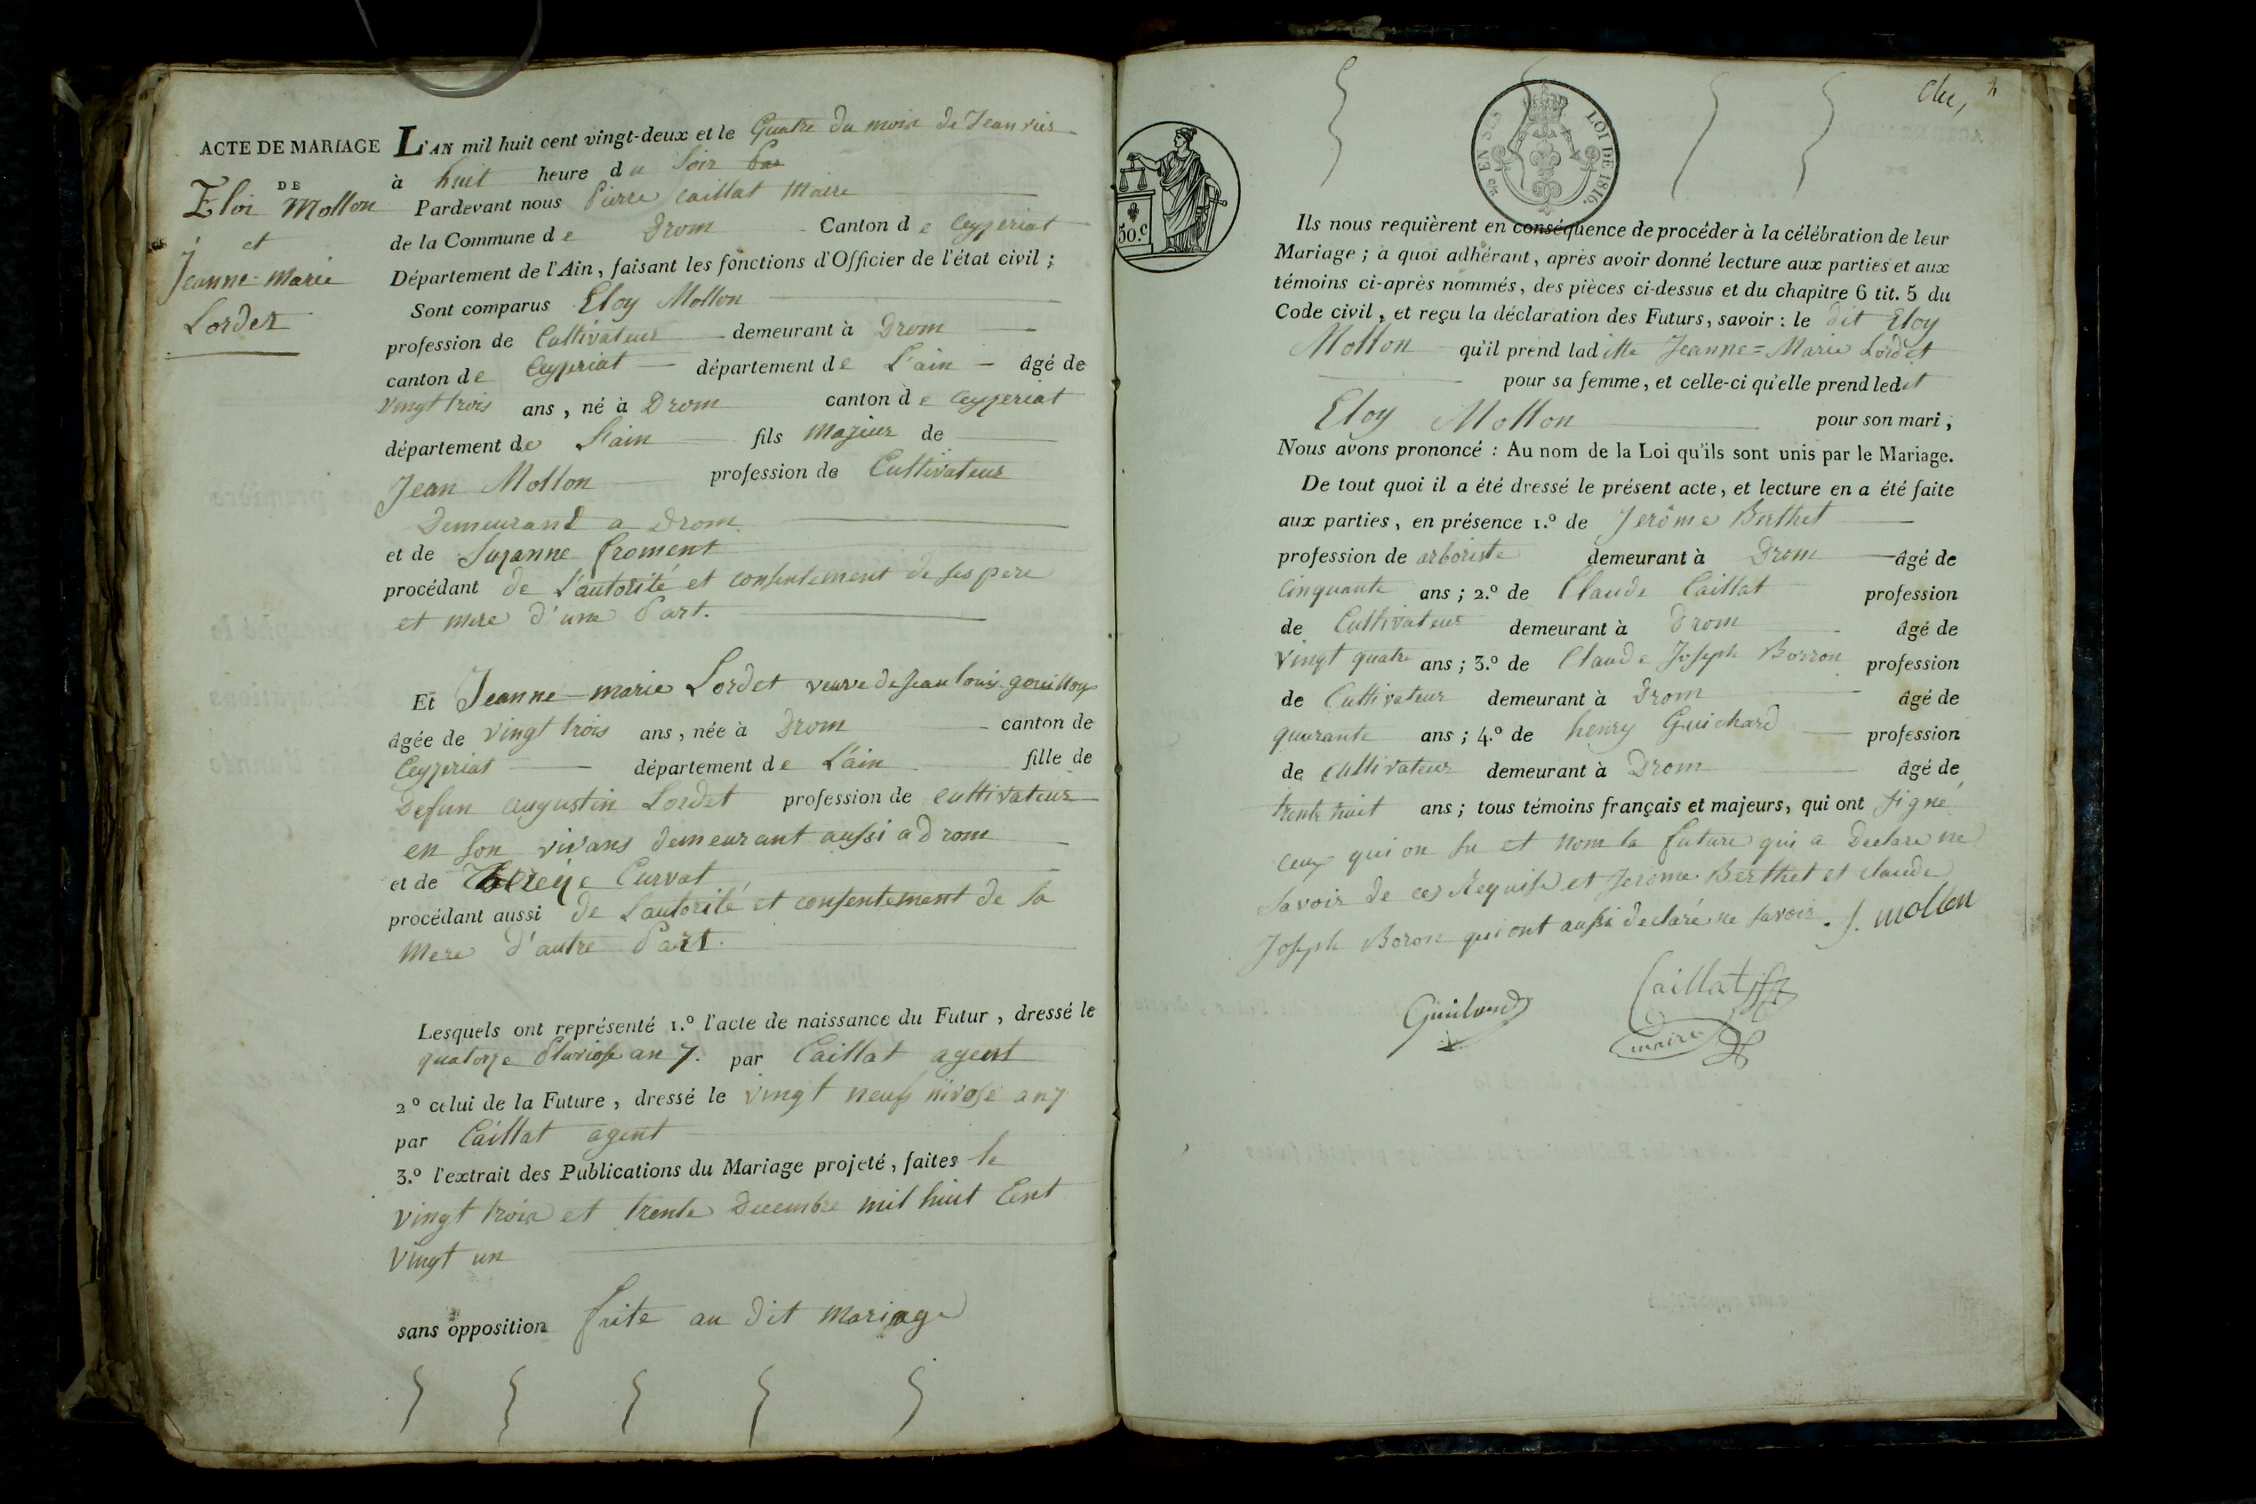 ACTE DE MARIAGE
DE
Eloi Mollon
et
Jeanne-Marie
Lordet
L'AN mil huit cent vingt-deux et le Quatre du mois de Jeanvier
à huit heure du Soir
Pardevant nous Pierre Caillat Maire
de la Commune de Drom Canton de Ceyzeriat
Département de l'Ain, faisant les fonctions d'Officier de l'état civil ;
Sont comparus Eloy Mollon
profession de Cultivateur demeurant à Drom
canton de Ceyzeriat département de L'ain âgé de
vingt trois ans, né à Drom canton de Ceyzeriat
département de L'ain fils majeur de
Jean Mollon profession de Cultivateur
Demeurant a Drom
et de Suzanne froment
procédant de L'autorité et consentement de ses pere
et mere d'une Part.
Et Jeanne-marie Lordet veuve de jean louis gouilloy
âgée de vingt trois ans, née à Drom canton de
Ceyzeriat département de L'ain fille de
Defun augustin Lordet profession de cultivateur
en son vivans demeurant aussi a Drom
et de Curvat
procédant aussi de L'autorité et consentement de sa
mere d'autre Part.
Lesquels ont représenté 1.º l'acte de naissance du Futur, dressé le
quatorze Pluviose an 7. par Caillat agent
2º celui de la Future, dressé le vingt neuf nivose an 7
par Caillat agent
3.º l'extrait des Publications du Mariage projeté, faites le
vingt trois et trente Decembre mil huit Cent
vingt un
sans opposition faite au dit mariage
50.C
EN SUS
LOI DE 1816.
Ils nous requièrent en conséquence de procéder à la célébration de leur
Mariage ; à quoi adhérant, après avoir donné lecture aux parties et aux
témoins ci-après nommés, des pièces ci-dessus et du chapitre 6 tit. 5 du
Code civil, et reçu la déclaration des Futurs, savoir : le dit Eloy
Mollon qu'il prend laditte Jeanne=Marie Lordet
pour sa femme, et celle-ci qu'elle prend ledit
Eloy Mollon pour son mari ;
Nous avons prononcé : Au nom de la Loi qu'ils sont unis par le Mariage.
De tout quoi il a été dressé le présent acte, et lecture en a été faite
aux parties, en présence 1.º de Jerôme Berthet
profession de arboriste demeurant à Drom âgé de
Cinquante ans ; 2.º de Claude Caillat profession
de Cultivateur demeurant à Drom âgé de
vingt quatre ans ; 3.º de Claude Joseph Borron profession
de Cultivateur demeurant à Drom âgé de
quarante ans ; 4.º de henry Guichard profession
de cultivateur demeurant à Drom âgé de
trente huit ans ; tous témoins français et majeurs, qui ont signé
ceux qui on su et nom la future qui a Declare ne
savoir de ce Requise et Jerome Berthet et claude
Joseph Boron qui ont aussi declaré ne savoir. J. mollon
Caillat
maire